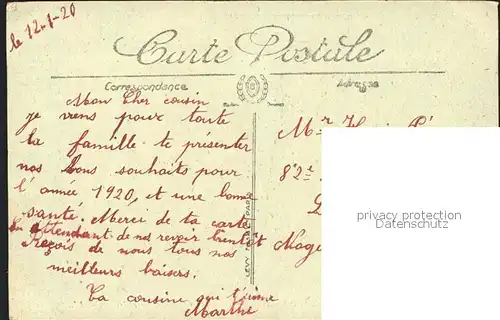 le 12-1-20
Carte Postale
Correspondance
Adresse
Mon Cher cousin
je viens pour toute
la famille te présenter
nos bons souhaits pour
l'année 1920, et une bonne
santé. Merci de ta carte
En attendant de nos revoir bientôt
Reçois de nous tous nos
meilleurs baisers.
Ta cousine qui t'aime
Marthe
LEVY PARIS
Mr
82e
privacy protection
Datenschutz